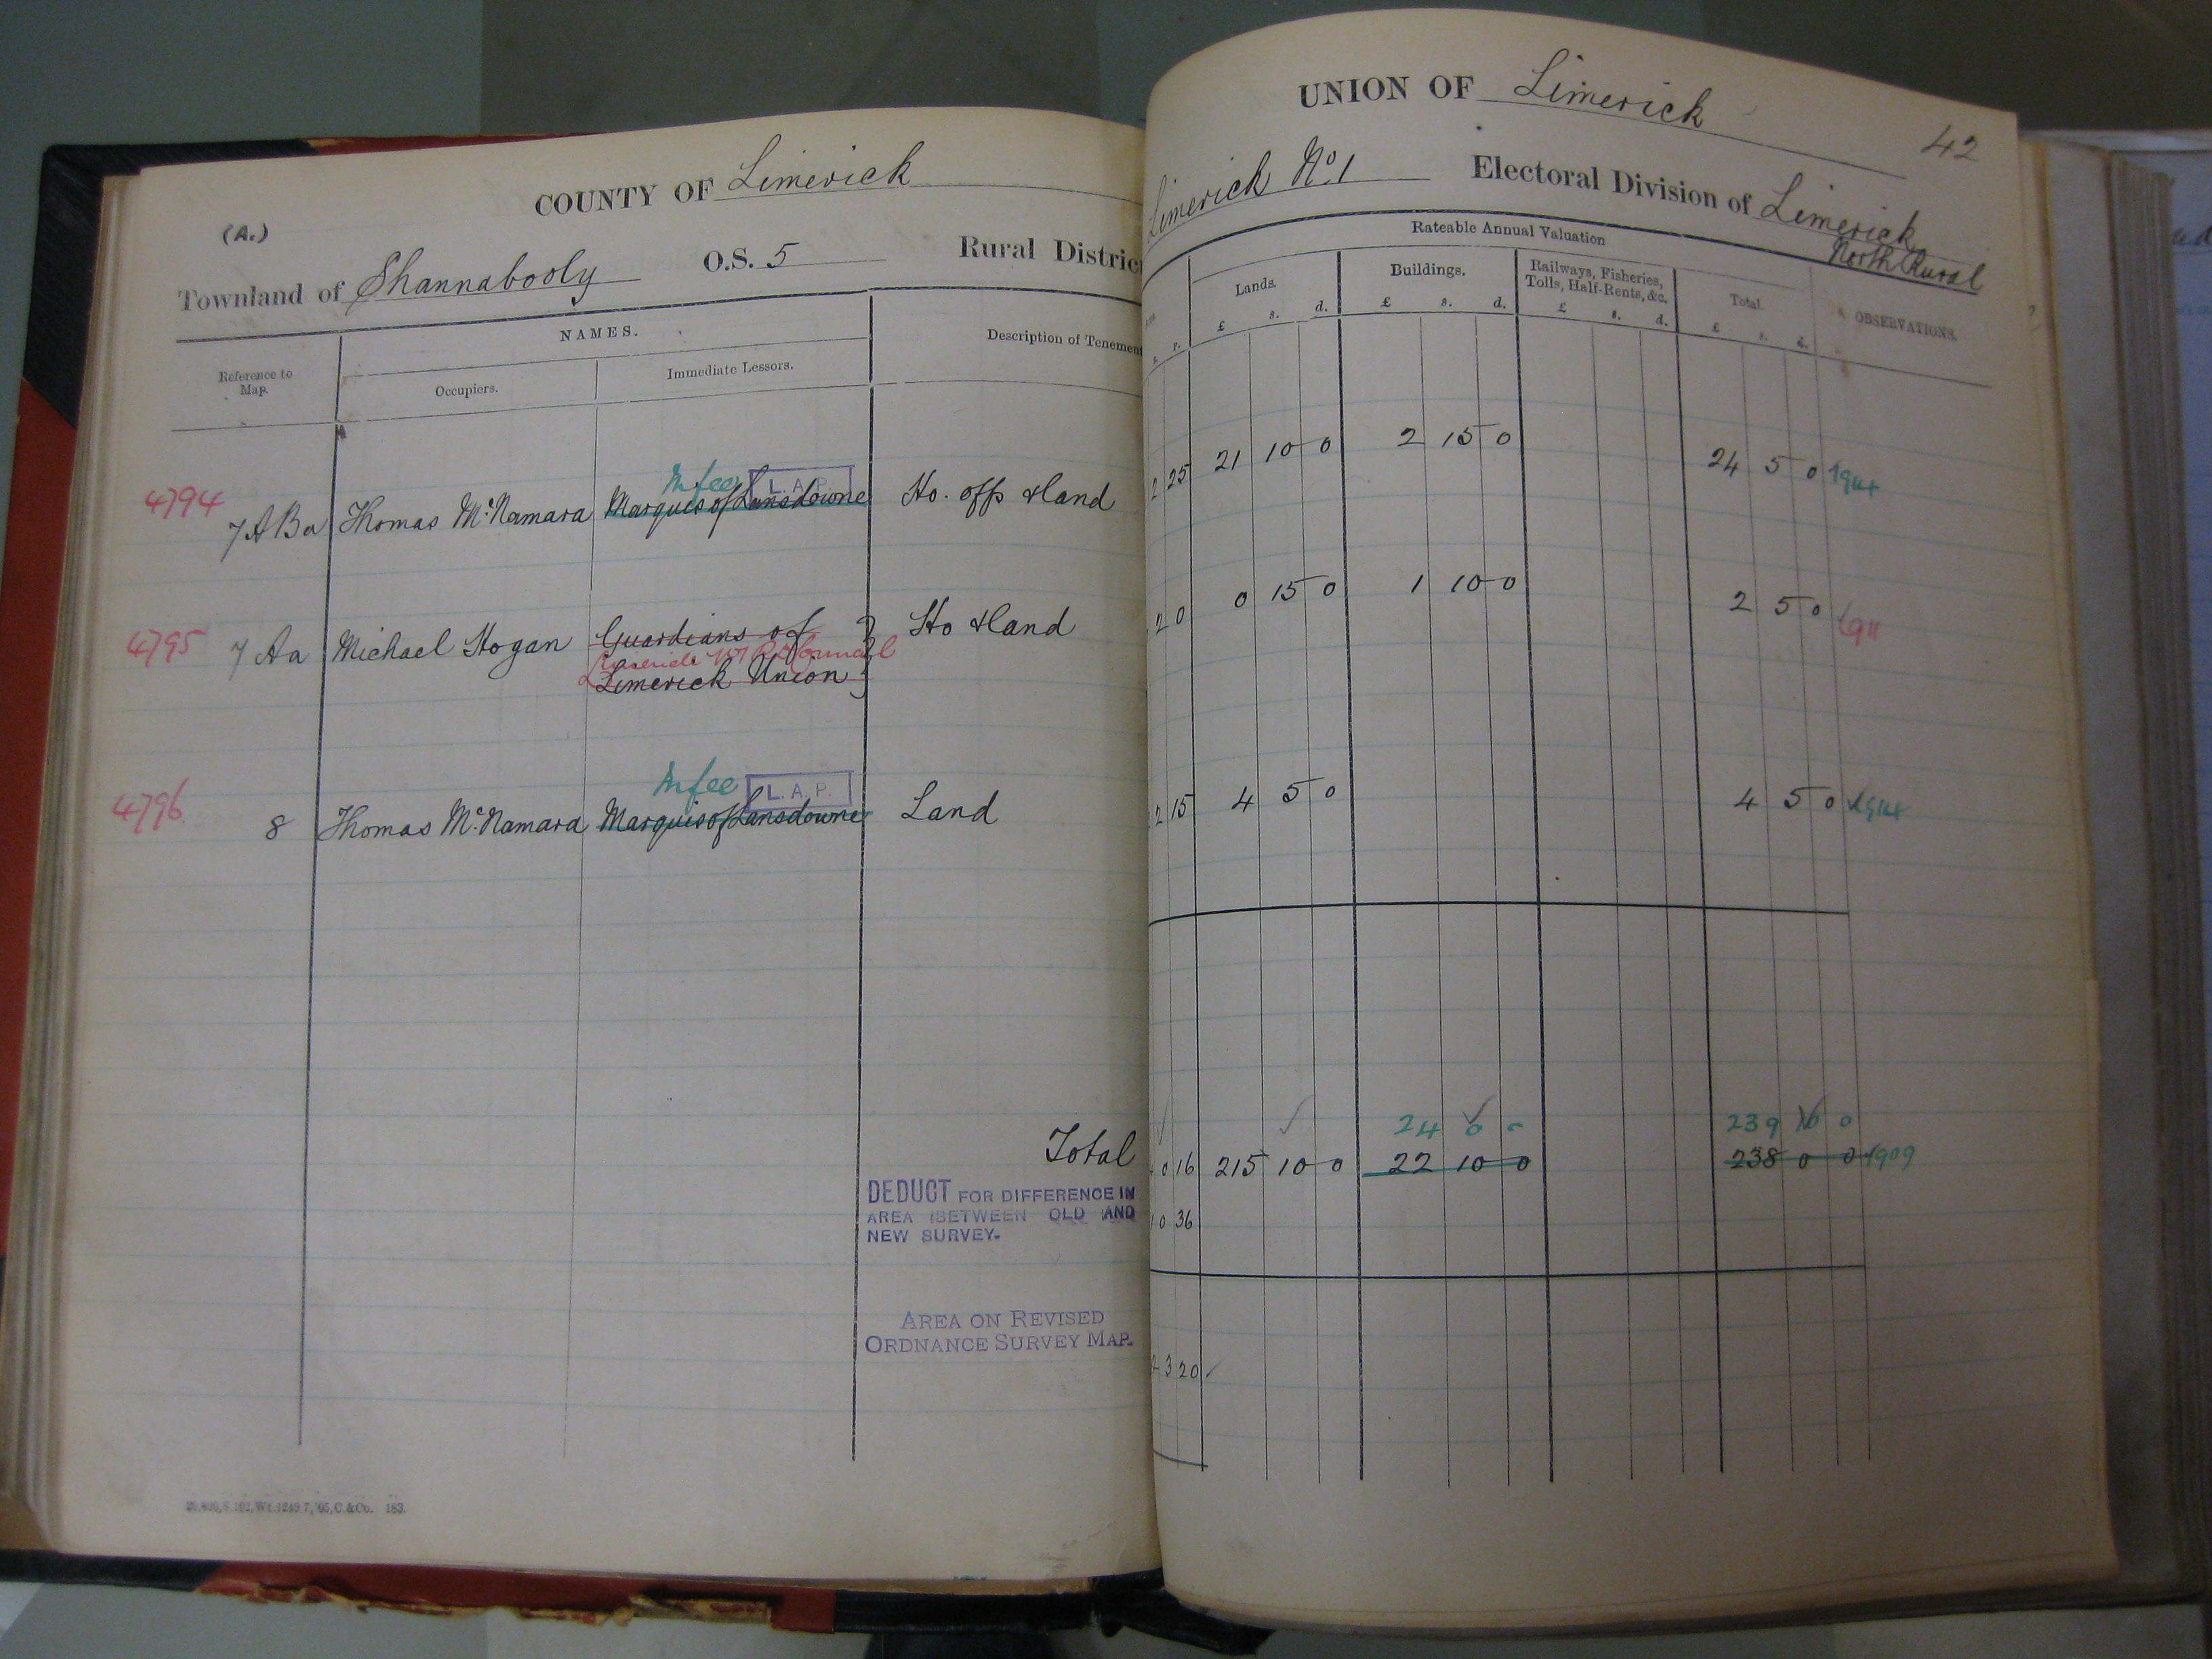 COUNTY OF Limerick
(A.)
Townland of Shannabooly O.S. 5 Rural Distric
Reference to
Map.
NAMES.
Occupiers.
Immediate Lessors.
Description of Tenemen
In fee L.A.P.
4794 7ABa Thomas McNamara Marquis of Lansdowne Ho. offs & land
4795 7 Aa Michael Hogan Guardians of } Ho & land
Limerick No 1 R.D. Council
Limerick Union
In fee L.A.P.
4796 8 Thomas McNamara Marquis of Lansdowne Land
Total
DEDUCT FOR DIFFERENCE IN
AREA BETWEEN OLD AND
NEW SURVEY.
AREA ON REVISED
ORDNANCE SURVEY MAP.
183.
UNION OF Limerick
42
Limerick No. 1 Electoral Division of Limerick
North Rural
Rateable Annual Valuation
Lands.
£ s. d.
Buildings.
£ s. d.
Railways, Fisheries,
Tolls, Half-Rents, &c.
£ s. d.
Total.
£ s. d.
OBSERVATIONS.
2 25 21 10 0 2 15 0 24 5 0
2 0 0 15 0 1 10 0 2 5 0 1911
2 15 4 5 0 4 5 0
24 0 0 239 10 0
0 16 215 10 0 22 10 0 238 0 0 1909
0 36
3 20